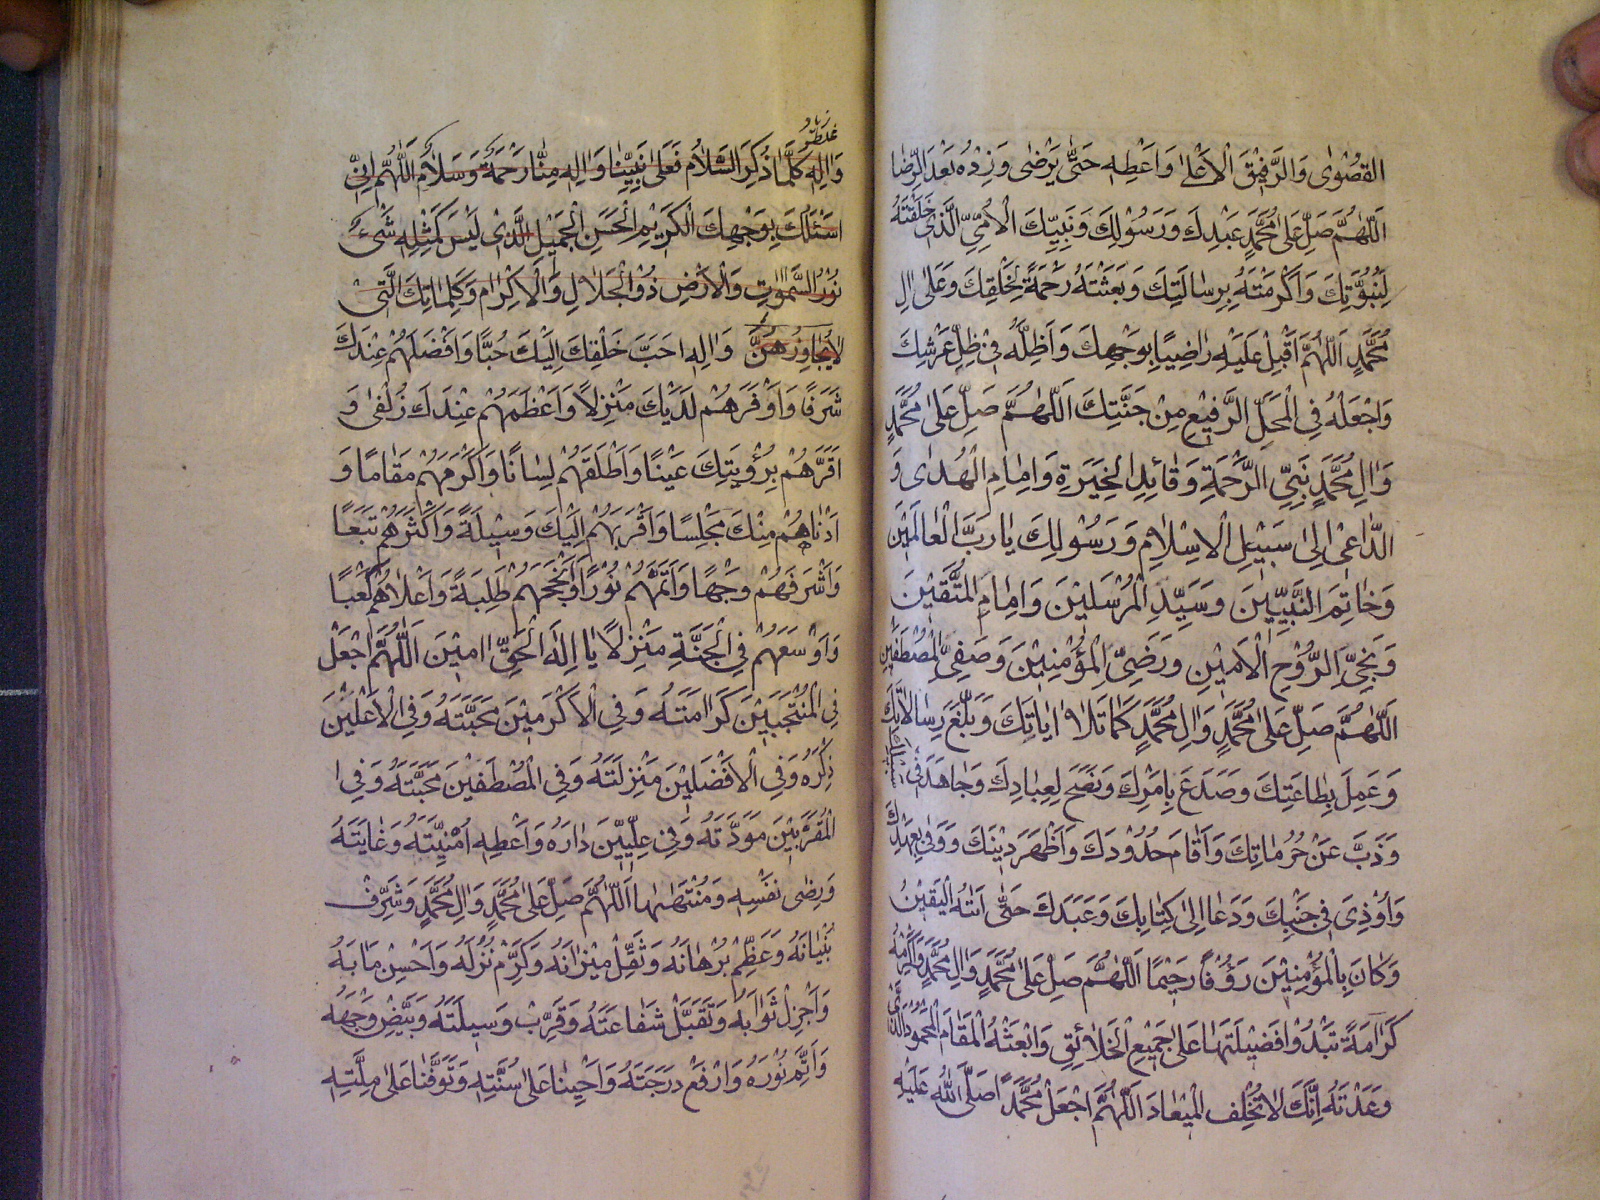 القصوٰى والرَّفِيْقَ الْاَعْلٰى وَاَعْطِهِ حَتّٰى يَرْضٰى وَزِدْهُ بَعْدَ الرِّضَا
اَللّٰهُمَّ صَلِّ عَلٰى مُحَمَّدٍ عَبْدِكَ وَرَسُوْلِكَ وَنَبِيِّكَ الْاُمِّيِّ الَّذِىْ خَلَقْتَهُ
لِنُبُوَّتِكَ وَاَكْرَمْتَهُ بِرِسَالَتِكَ وَبَعَثْتَهُ رَحْمَةً لِخَلْقِكَ وَعَلٰى اٰلِ
مُحَمَّدٍ اَللّٰهُمَّ اَقْبِلْ عَلَيْهِ رَاضِيًا بِوَجْهِكَ وَاَظِلَّهُ فِىْ ظِلِّ عَرْشِكَ
وَاجْعَلْهُ فِى الْمَحَلِّ الرَّفِيْعِ مِنْ جَنَّتِكَ اَللّٰهُمَّ صَلِّ عَلٰى مُحَمَّدٍ
وَاٰلِ مُحَمَّدٍ نَبِيِّ الرَّحْمَةِ وَقَائِدِ الْخِيَرَةِ وَاِمَامِ الْهُدٰى وَ
الدَّاعِىْ اِلٰى سَبِيْلِ الْاِسْلَامِ وَرَسُوْلِكَ يَا رَبَّ الْعَالَمِيْنَ
وَخَاتِمَ النَّبِيِّيْنَ وَسَيِّدِ الْمُرْسَلِيْنَ وَاِمَامِ الْمُتَّقِيْنَ
وَنَجِيِّ الرُّوْحِ الْاَمِيْنِ وَرَضِيِّ الْمُؤْمِنِيْنَ وَصَفِيِّ الْمُصْطَفَيْنَ
اَللّٰهُمَّ صَلِّ عَلٰى مُحَمَّدٍ وَاٰلِ مُحَمَّدٍ كَمَا تَلَا اٰيَاتِكَ وَبَلَّغَ رِسَالَاتِكَ
وَعَمِلَ بِطَاعَتِكَ وَصَدَعَ بِاَمْرِكَ وَنَصَحَ لِعِبَادِكَ وَجَاهَدَ فِىْ سَبِيْلِكَ
وَذَبَّ عَنْ حُرُمَاتِكَ وَاَقَامَ حُدُوْدَكَ وَاَظْهَرَ دِيْنَكَ وَوَفٰى بِعَهْدِكَ
وَاُوْذِىَ فِىْ جَنْبِكَ وَدَعَا اِلٰى كِتَابِكَ وَعَبَدَكَ حَتّٰى اَتٰهُ الْيَقِيْنُ
وَكَانَ بِالْمُؤْمِنِيْنَ رَؤُفًا رَحِيْمًا اَللّٰهُمَّ صَلِّ عَلٰى مُحَمَّدٍ وَاٰلِ مُحَمَّدٍ وَاَكْرِمْهُ
كَرَامَةً تَبْدُوْا فَضِيْلَتَهَا عَلٰى جَمِيْعِ الْخَلَائِقِ وَابْعَثْهُ الْمَقَامَ الْمَحْمُوْدَ الَّذِىْ
وَعَدْتَهُ اِنَّكَ لَا تُخْلِفُ الْمِيْعَادَ اَللّٰهُمَّ اجْعَلْ مُحَمَّدًا صَلَّى اللّٰهُ عَلَيْهِ
وَاٰلِهِ كُلَّمَا ذُكِرَ السَّلَامُ فَعَلٰى نَبِيِّنَا وَاٰلِهِ مِنَّا رَحْمَةٌ وَسَلَامٌ اَللّٰهُمَّ اِنِّىْ
اَسْئَلُكَ بِوَجْهِكَ الْكَرِيْمِ الْحَسَنِ الْجَمِيْلِ الَّذِىْ لَيْسَ كَمِثْلِهِ شَىْءٌ
نُوْرُ السَّمٰوٰتِ وَالْاَرْضِ ذُو الْجَلَالِ وَالْاِكْرَامِ وَكَلِمَاتِكَ الَّتِىْ
لَا يُجَاوِزُهُنَّ وَاٰلِهِ اَحَبَّ خَلْقِكَ اِلَيْكَ حُبًّا وَاَفْضَلَهُمْ عِنْدَكَ
شَرَفًا وَاَوْفَرَهُمْ لَدَيْكَ مَنْزِلًا وَاَعْظَمَهُمْ عِنْدَكَ زُلْفٰى وَ
اَقَرَّهُمْ بِرُؤْيَتِكَ عَيْنًا وَاَطْلَقَهُمْ لِسَانًا وَاَكْرَمَهُمْ مَقَامًا وَ
اَدْنَاهُمْ مِنْكَ مَجْلِسًا وَاَقْرَبَهُمْ اِلَيْكَ وَسِيْلَةً وَاَكْثَرَهُمْ تَبَعًا
وَاَشْرَفَهُمْ وَجْهًا وَاَتَمَّهُمْ نُوْرًا وَاَنْجَحَهُمْ طَلِبَةً وَاَعْلَاهُمْ كَعْبًا
وَاَوْسَعَهُمْ فِى الْجَنَّةِ مَنْزِلًا يَا اِلٰهَ الْحَقِّ اٰمِيْنَ اَللّٰهُمَّ اجْعَلْ
فِى الْمُنْتَجَبِيْنَ كَرَامَتَهُ وَفِى الْاَكْرَمِيْنَ مَحَبَّتَهُ وَفِى الْاَعْلَيْنَ
ذِكْرَهُ وَفِى الْاَفْضَلِيْنَ مَنْزِلَتَهُ وَفِى الْمُصْطَفَيْنَ مَحَبَّتَهُ وَفِى ا
الْمُقَرَّبِيْنَ مَوَدَّتَهُ وَفِىْ عِلِّيِّيْنَ دَارَهُ وَاَعْطِهِ اُمْنِيَّتَهُ وَغَايَتَهُ
وَرِضٰى نَفْسِهِ وَمُنْتَهٰهَا اَللّٰهُمَّ صَلِّ عَلٰى مُحَمَّدٍ وَاٰلِ مُحَمَّدٍ وَشَرِّفْ
بُنْيَانَهُ وَعَظِّمْ بُرْهَانَهُ وَثَقِّلْ مِيْزَانَهُ وَكَرِّمْ نُزُلَهُ وَاَحْسِنْ مَابَهُ
وَاَجْزِلْ ثَوَابَهُ وَتَقَبَّلْ شَفَاعَتَهُ وَقَرِّبْ وَسِيلَتَهُ وَبَيِّضْ وَجْهَهُ
وَاَتِمَّ نُوْرَهُ وَارْفَعْ دَرَجَتَهُ وَاَحْيِنَا عَلٰى سُنَّتِهِ وَتَوَفَّنَا عَلٰى مِلَّتِهِ